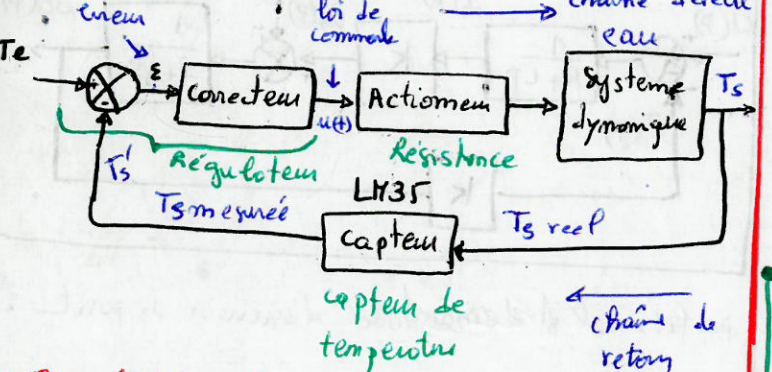 erreur
loi de
commande
chaîne d'action
eau
Te
ε
Correcteur
u(t)
Actionneur
Système
dynamique
Ts
Régulateur
Résistence
Ts'
Ts mesuréé
LM35
Capteur
Ts reel
capteur de
température
chaîne de
retour